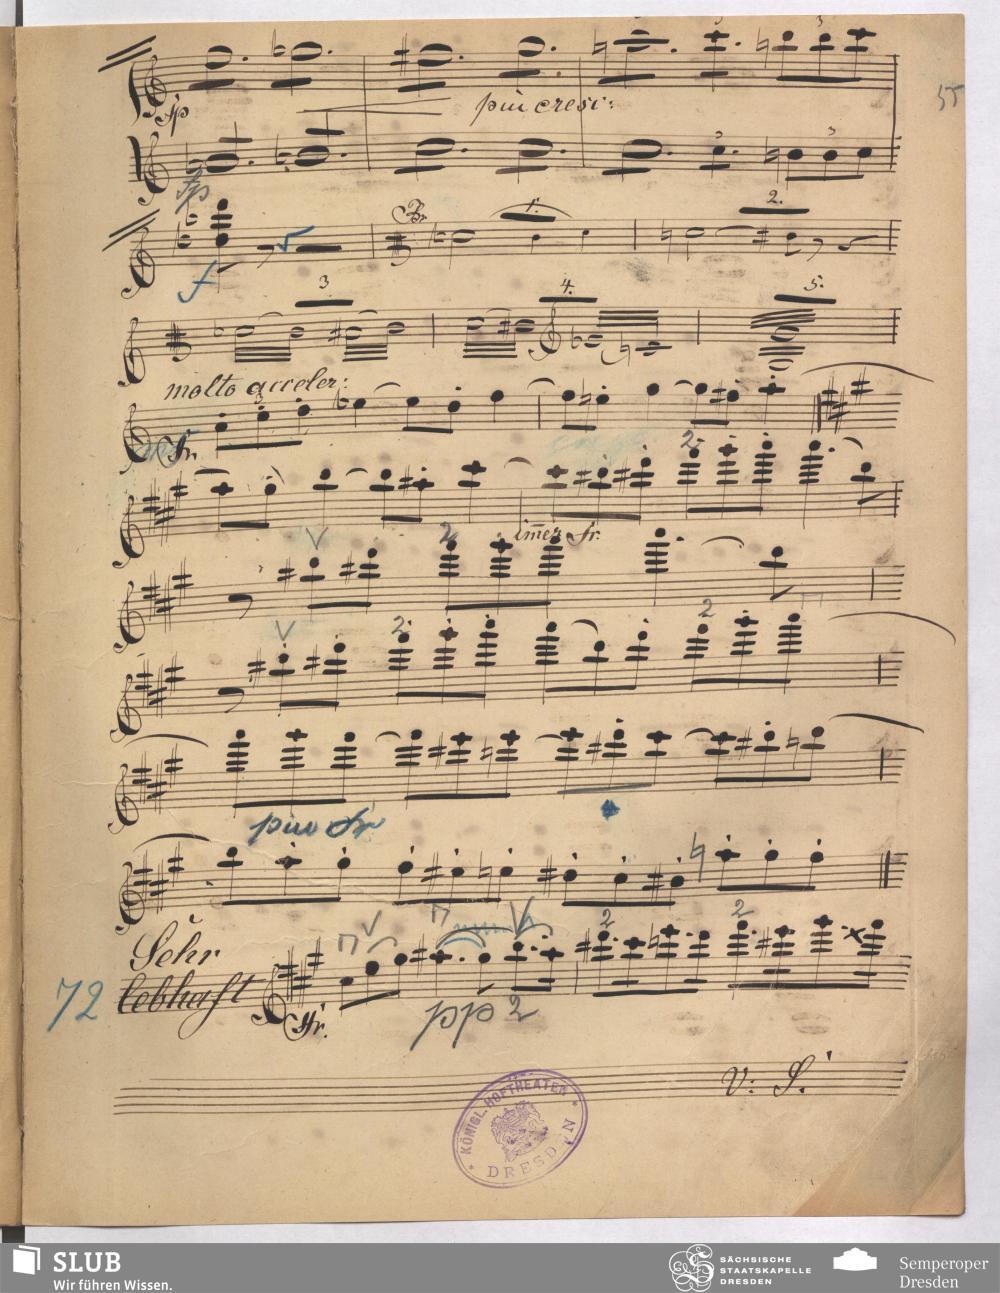 3 3
55
fp
più cresc:
3 3
fp
Br.
1.
2.
f 5
3
4.
5.
molto acceler:
3
Fr.
2
immer Fr.
2
2 2
più Fr
Sehr
lebhaft
72
2
2
Fr.
pp 2
V: S.
KÖNIGL. HOFTHEATER
DRESDEN
SLUB
Wir führen Wissen.
SÄCHSISCHE
STAATSKAPELLE
DRESDEN
Semperoper
Dresden